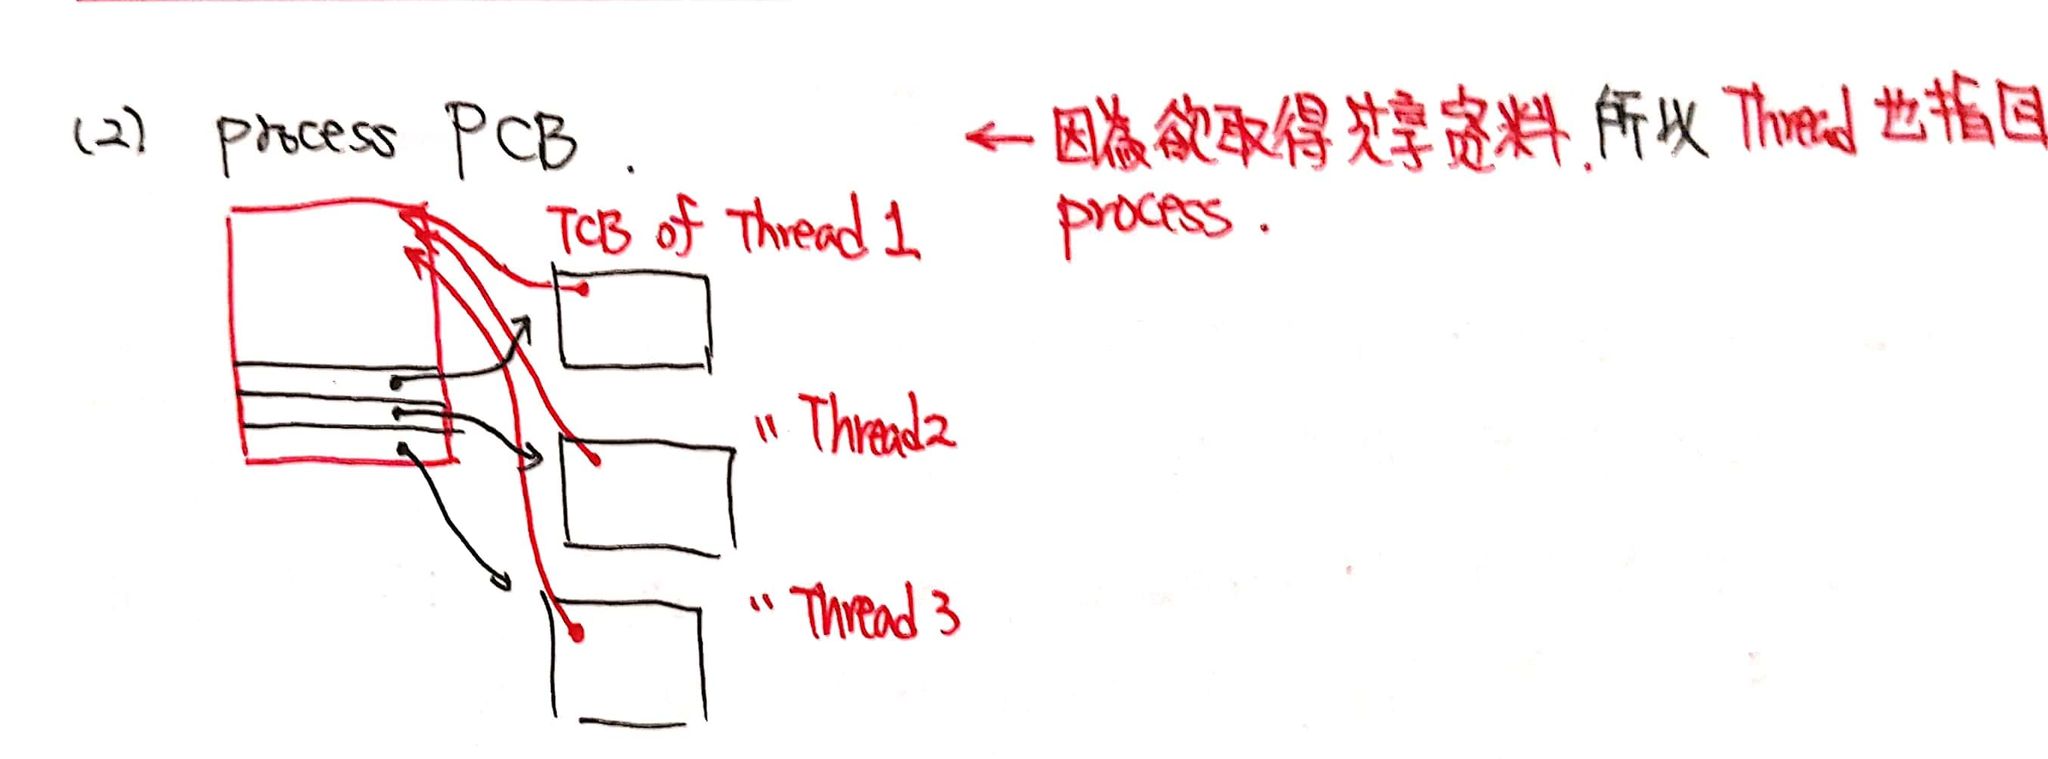 (2) process PCB.
← 因為欲取得共享資料.所以 Thread 也指回
process.
TCB of Thread 1
" Thread2
" Thread 3